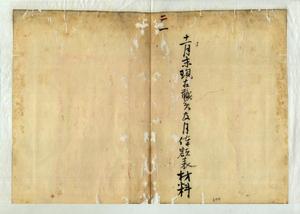 十一月末現在職員及月俸額表材料